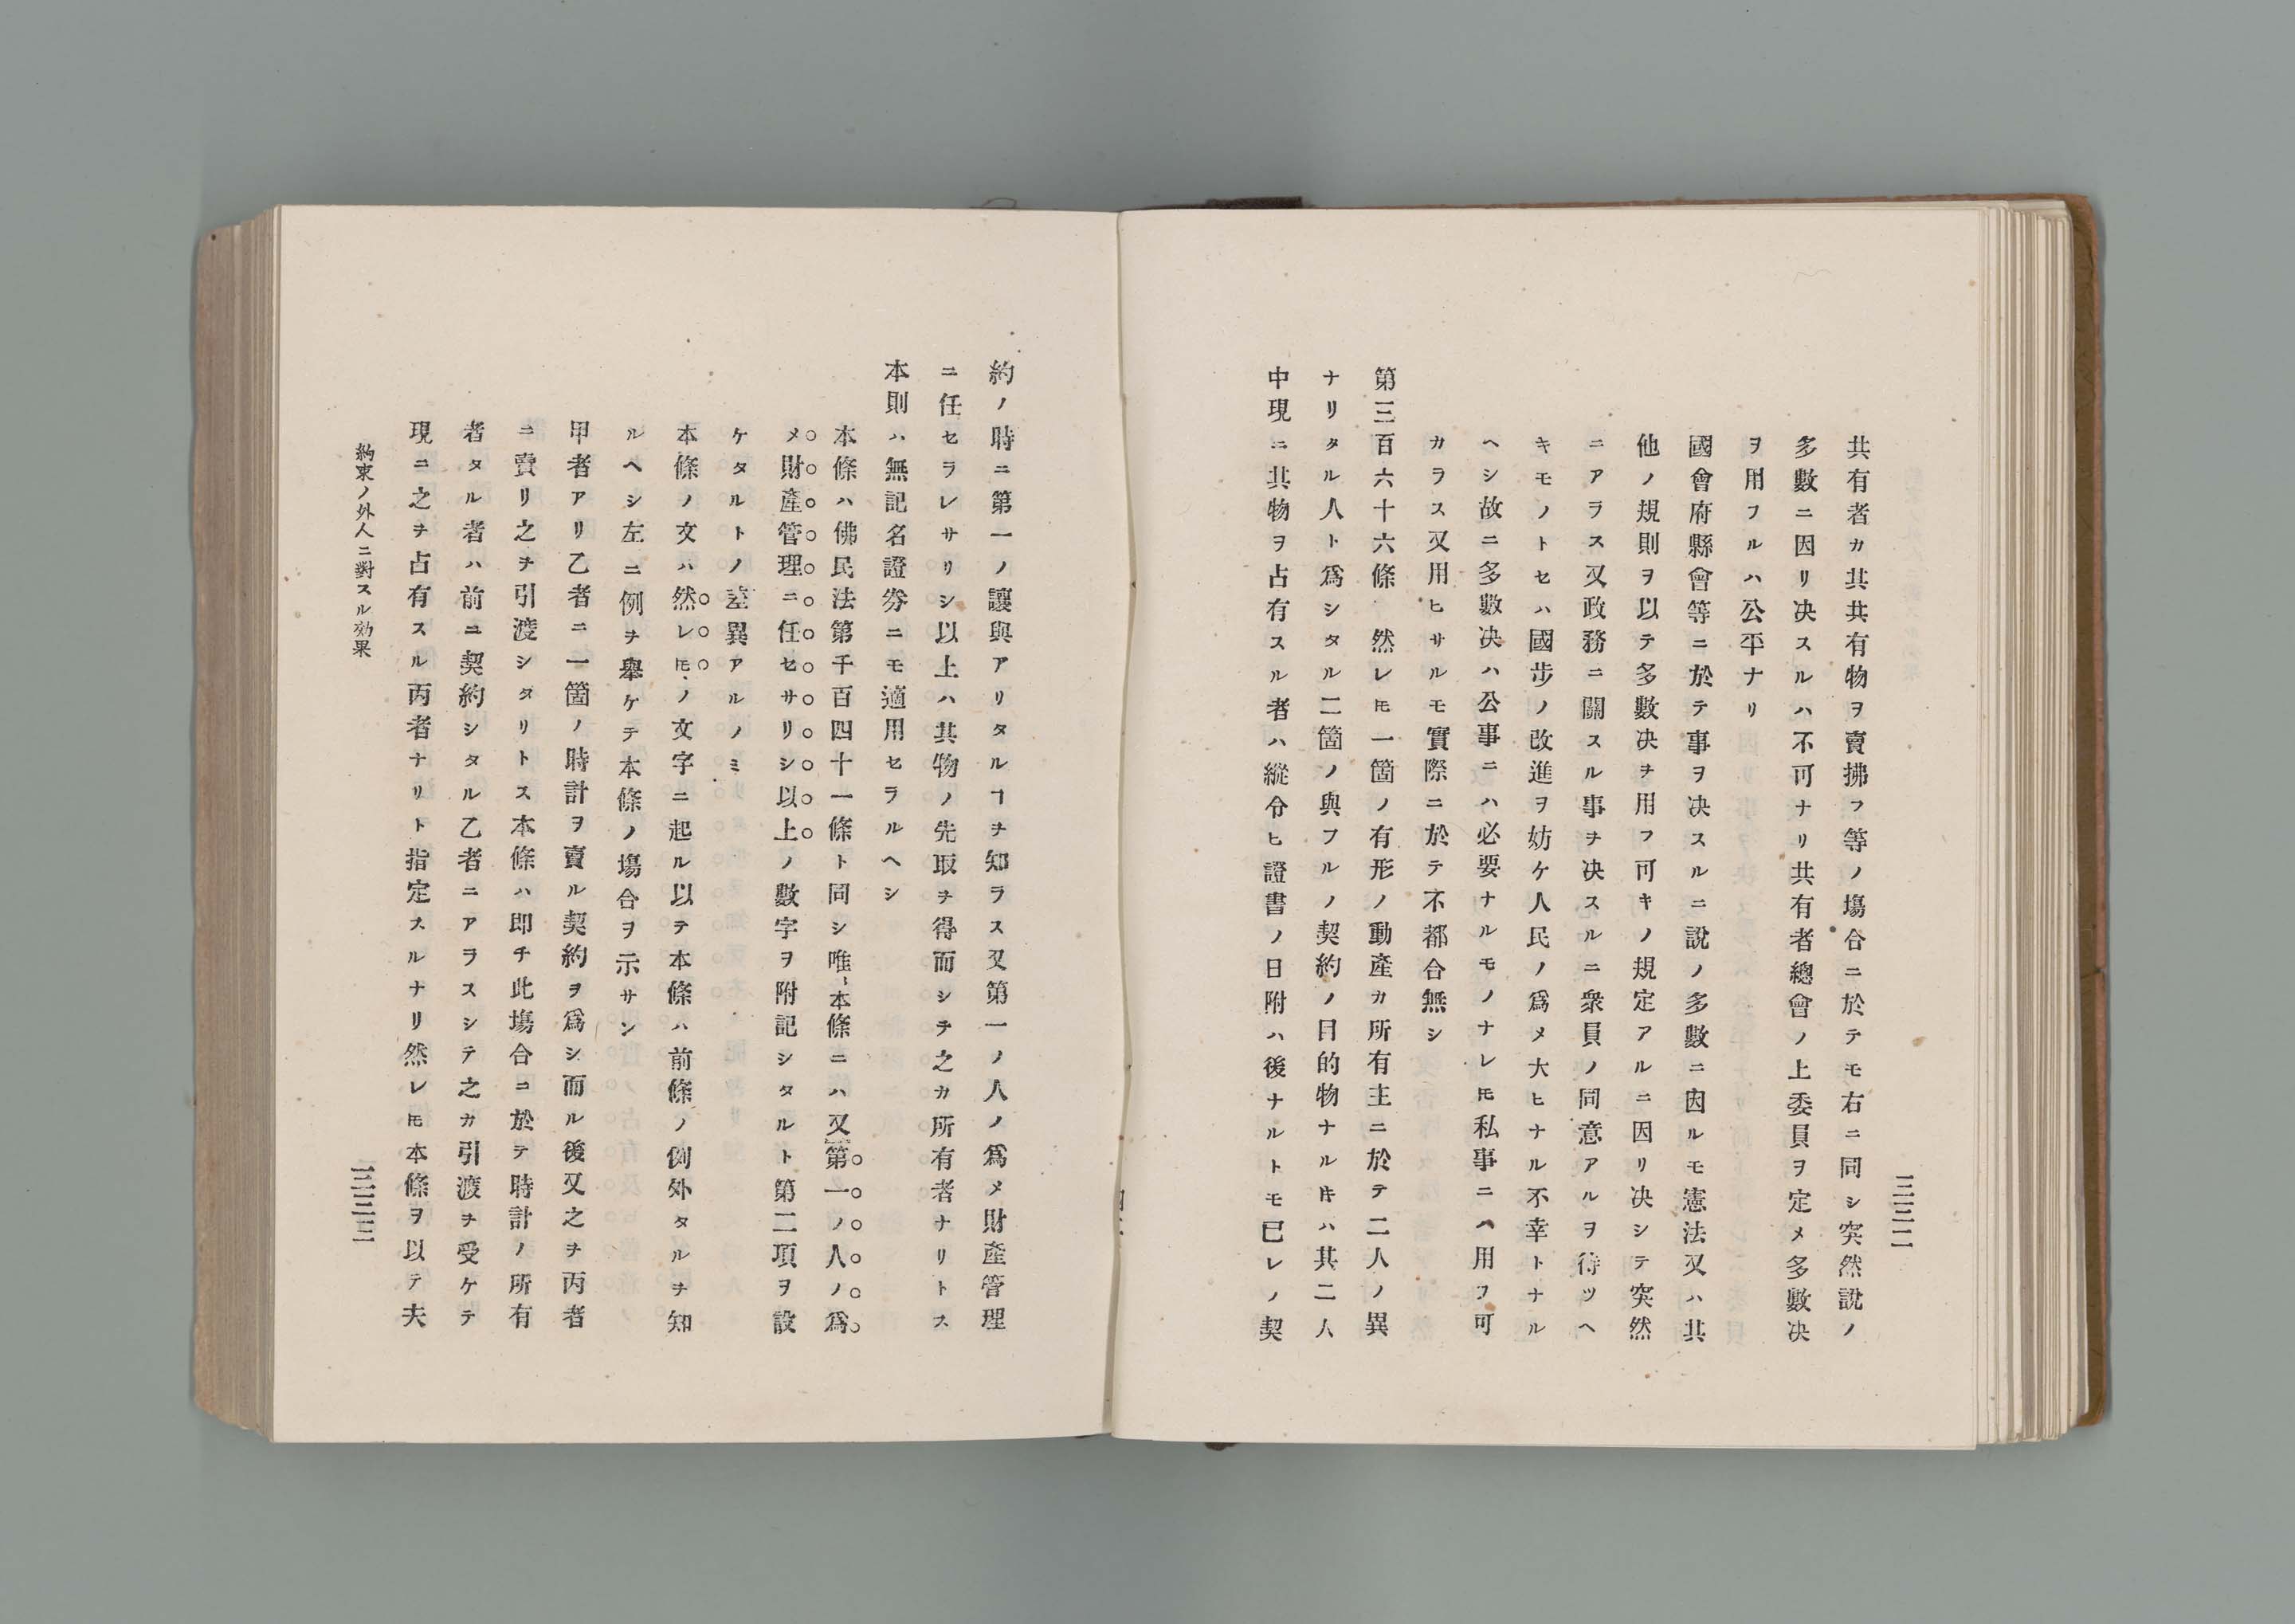 三三二
共有者カ其共有物ヲ賣拂フ等ノ塲合ニ於テモ右ニ同シ突然說ノ
多數ニ因リ决スルハ不可ナリ共有者總會ノ上委員ヲ定メ多數决
ヲ用フルハ公平ナリ
國會府縣會等ニ於テ事ヲ决スルニ說ノ多數ニ因ルモ憲法又ハ其
他ノ規則ヲ以テ多數决ヲ用フ可キノ規定アルニ因リ决シテ突然
ニアラス又政務ニ關スル事ヲ决スルニ衆員ノ同意アルヲ待ツヘ
キモノトセハ國步ノ改進ヲ妨ケ人民ノ爲メ大ヒナル不幸トナル
ヘシ故ニ多數决ハ公事ニハ必要ナルモノナレㇳモ私事ニハ用フ可
カラス又用ヒサルモ實際ニ於テ不都合無シ
第三百六十六條 然レㇳモ一箇ノ有形ノ動產カ所有主ニ於テ二人ノ異
ナリタル人ト爲シタル二箇ノ與フルノ契約ノ目的物ナルㇳキハ其二人
中現ニ其物ヲ占有スル者ハ縱令ヒ證書ノ日附ハ後ナルトモ已レノ契
約ノ時ニ第一ノ讓與アリタルヿヲ知ラス又第一ノ人ノ爲メ財產管理
ニ任セラレサリシ以上ハ其物ノ先取ヲ得而シテ之カ所有者ナリトス
本則ハ無記名證券ニモ適用セラルヘシ
本條ハ佛民法第千百四十一條ト同シ唯本條ニハ又第一ノ人ノ爲
メ財產管理ニ任セサリシ以上ノ數字ヲ附記シタルト第二項ヲ設
ケタルトノ差異アルノミ
本條ノ文ハ然レㇳモノ文字ニ起ル以テ本條ハ前條ノ例外タルヲ知
ルヘシ左ニ例ヲ舉ケテ本條ノ塲合ヲ示サン
甲者アリ乙者ニ一箇ノ時計ヲ賣ル契約ヲ爲シ而ル後又之ヲ丙者
ニ賣リ之ヲ引渡シタリトス本條ハ即チ此塲合ニ於テ時計ノ所有
者タル者ハ前ニ契約シタル乙者ニアラスシテ之カ引渡ヲ受ケテ
現ニ之ヲ占有スル丙者ナリト指定スルナリ然レㇳモ本條ヲ以テ夫
約束ノ外人ニ對スル効果
三三三